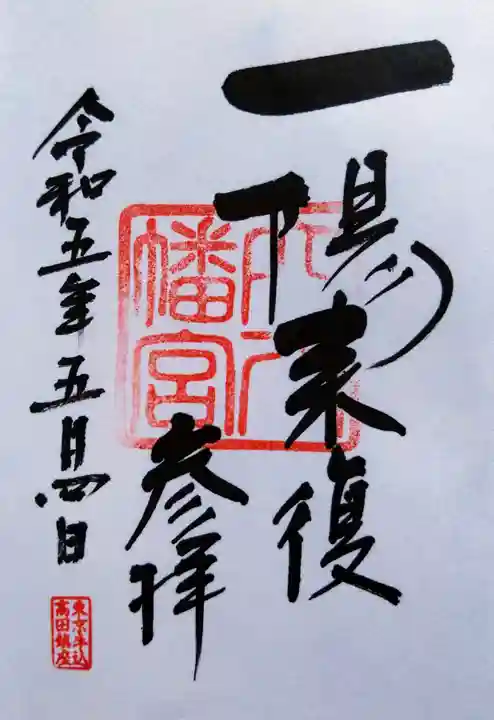 一陽来復
参拝
令和五年五月四日
八幡宮
東京牛込
高田鎮座